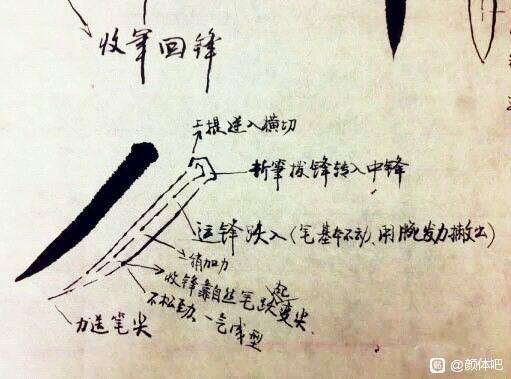 收笔回锋
上提逆入横切
折笔拨锋转入中锋
运锋跌入(笔基本不动、用腕发力撇出)
稍加力
收锋靠自然笔跌起变尖.
不松劲、一气成型
力送笔尖
@颜体吧